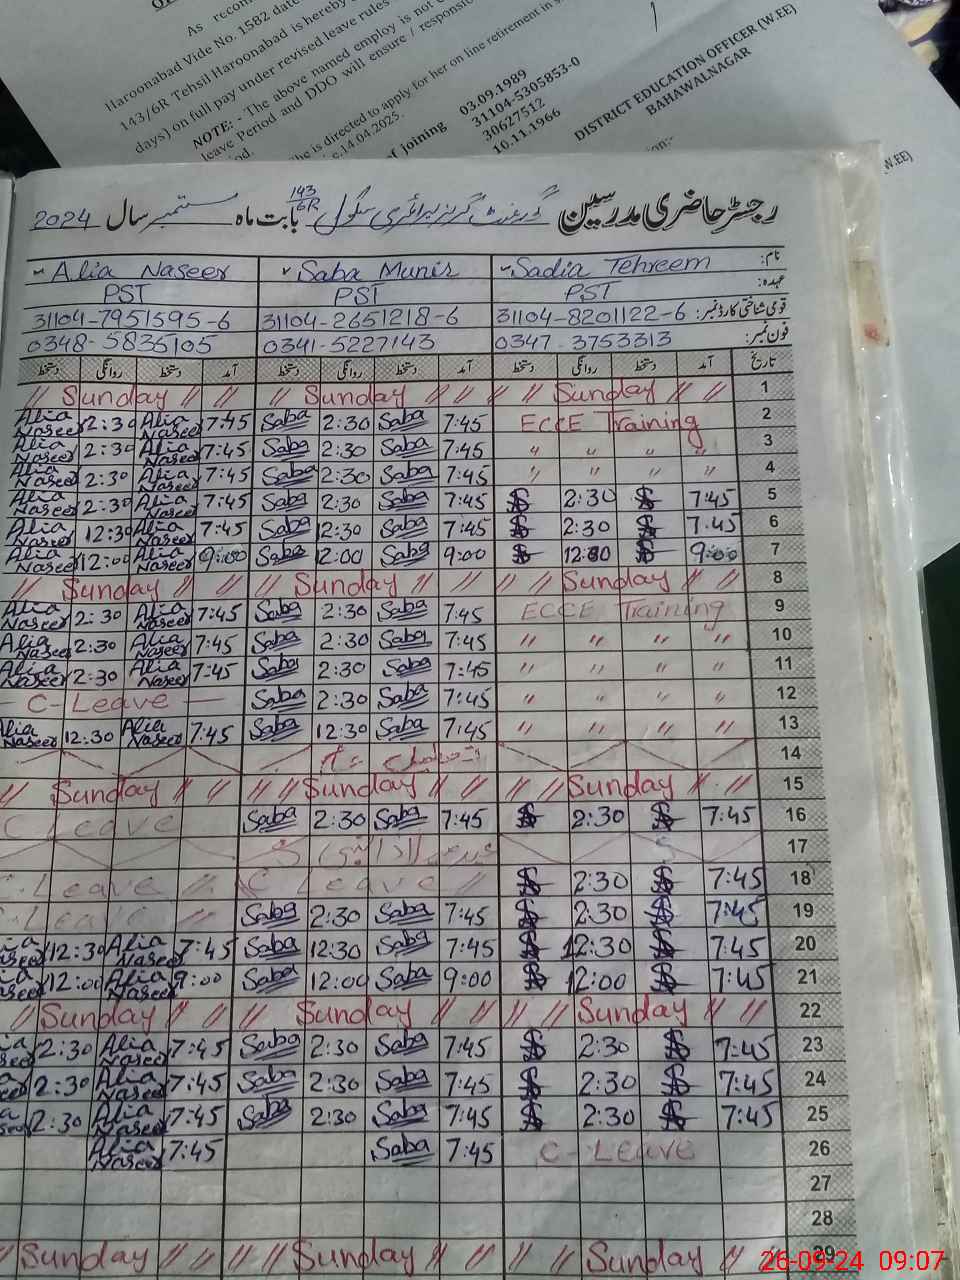 As
Haroonabad Vide No. 1582
143/6R Tehsil Haroonabad is hereby
days) on full pay under revised leave rules
NOTE: - The above named employ is not
leave Period and DDO will ensure / responsi
he is directed to apply for her on line retirement in
14.04.2025.
f joining 03.09.1989
31104-5305853-0
30627512
10.11.1966
DISTRICT EDUCATION OFFICER (W.EE)
BAHAWALNAGAR
W.EE)
رجسٹر حاضری مدرسین گورنمنٹ گرلز پرائمری سکول 143/6R بابت ماہ ستمبر سال 2024
نام: Sadia Tehreem Saba Munir Alia Naseer
عہدہ: PST PST PST
قومی شناختی کارڈ نمبر: 31104-8201122-6 31104-2651218-6 31104-7951595-6
فون نمبر: 0347-3753313 0341-5227143 0348-5836105
تاریخ آمد دستخط روانگی دستخط آمد دستخط روانگی دستخط آمد دستخط روانگی دستخط
1 // // Sunday // // // Sunday // // // Sunday //
2 ECCE Training 7:45 Saba 2:30 Saba 7:45 Alia Naseer 2:30 Alia Naseer
3 " " " " 7:45 Saba 2:30 Saba 7:45 Alia Naseer 2:30 Alia Naseer
4 " " " " 7:45 Saba 2:30 Saba 7:45 Alia Naseer 2:30 Alia Naseer
5 7:45 2:30 7:45 Saba 2:30 Saba 7:45 Alia Naseer 2:30 Alia Naseer
6 7:45 2:30 7:45 Saba 12:30 Saba 7:45 Alia Naseer 12:30 Alia Naseer
7 9:00 9:00 Saba 12:00 Saba 9:00 Alia Naseer 12:00 Alia Naseer
8 // // Sunday // // // // Sunday // // // // Sunday // //
9 ECCE Training 7:45 Saba 2:30 Saba 7:45 Alia Naseer 2:30 Alia Naseer
10 " " " " 7:45 Saba 2:30 Saba 7:45 Alia Naseer 2:30 Alia Naseer
11 " " " " 7:45 Saba 2:30 Saba 7:45 Alia Naseer 2:30 Alia Naseer
12 " " " " 7:45 Saba 2:30 Saba C-Leave
13 " " " " 7:45 Saba 12:30 Saba 7:45 Alia Naseer 12:30 Alia Naseer
14
15 // // Sunday // // // // Sunday // // // // Sunday //
16 7:45 2:30 7:45 Saba 2:30 Saba C Leave
17
18 7:45 2:30 C Leave C-Leave
19 7:45 2:30 7:45 Saba 2:30 Saba C-Leave
20 7:45 12:30 7:45 Saba 12:30 Saba 7:45 Alia Naseer 12:30
21 7:45 12:00 9:00 Saba 12:00 Saba 9:00 Alia Naseer 12:00
22 // // Sunday // // // // Sunday // // // // Sunday //
23 7:45 2:30 7:45 Saba 2:30 Saba 7:45 Alia Naseer 2:30
24 7:45 2:30 7:45 Saba 2:30 Saba 7:45 Alia Naseer 2:30
25 7:45 2:30 7:45 Saba 2:30 Saba 7:45 Alia Naseer 2:30
26 C-Leave 7:45 Saba 7:45 Alia Naseer
27
28
29 // // Sunday // // // // Sunday // // // // Sunday //
26-09-24 09:07